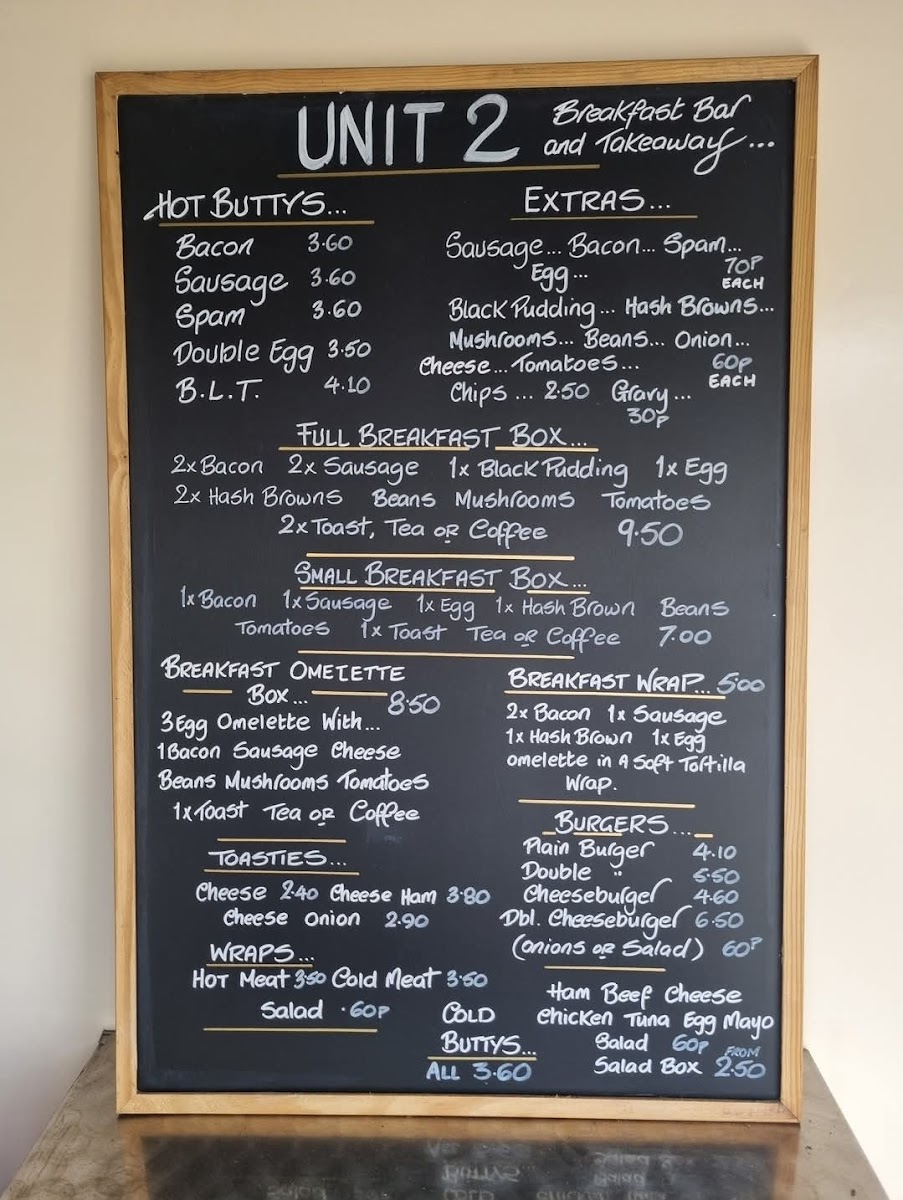 UNIT 2
Breakfast Bar
and Takeaway...
HOT BUTTYS...
Bacon 3.60
Sausage 3.60
Spam 3.60
Double Egg 3.50
B.L.T. 4.10
EXTRAS...
Sausage... Bacon... Spam...
Egg... 70P
EACH
Black Pudding... Hash Browns...
Mushrooms... Beans... Onion...
Cheese... Tomatoes... 60p
EACH
Chips ... 2.50 Gravy...
30p
FULL BREAKFAST BOX...
2x Bacon 2x Sausage 1x Black Pudding 1x Egg
2x Hash Browns Beans Mushrooms Tomatoes
2x Toast, Tea or Coffee 9.50
SMALL BREAKFAST BOX...
1x Bacon 1x Sausage 1x Egg 1x Hash Brown Beans
Tomatoes 1x Toast Tea or Coffee 7.00
BREAKFAST OMELETTE
Box... 8.50
3 Egg Omelette With...
1 Bacon Sausage Cheese
Beans Mushrooms Tomatoes
1x Toast Tea or Coffee
BREAKFAST WRAP... 5.00
2x Bacon 1x Sausage
1x Hash Brown 1x Egg
omelette in A Soft Tortilla
Wrap.
TOASTIES...
Cheese 2.40 Cheese Ham 3.80
Cheese onion 2.90
BURGERS...
Plain Burger 4.10
Double " 5.50
Cheeseburger 4.60
Dbl. Cheeseburger 6.50
(onions or Salad) 60P
WRAPS...
Hot Meat 3.50 Cold Meat 3.50
Salad .60P
COLD
BUTTYS...
ALL 3.60
Ham Beef Cheese
chicken Tuna Egg Mayo
Salad 60P
Salad Box FROM 2.50